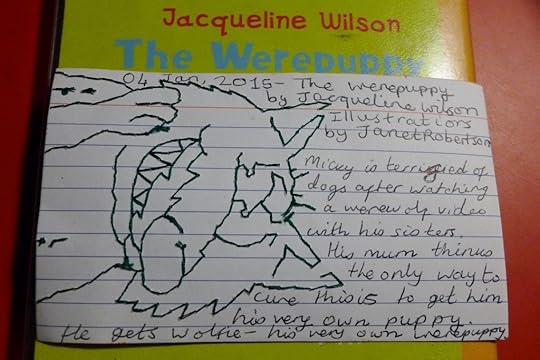 Jacqueline Wilson
The Werepuppy
04 Jan 2015 - The Werepuppy
by Jacqueline Wilson
Illustrations
by Janet Robertson
Micky is terrified of
dogs after watching
a werewolf video
with his sisters.
His mum thinks
the only way to
cure this is to get him
his very own puppy
He gets Wolfie - his very own werepuppy.